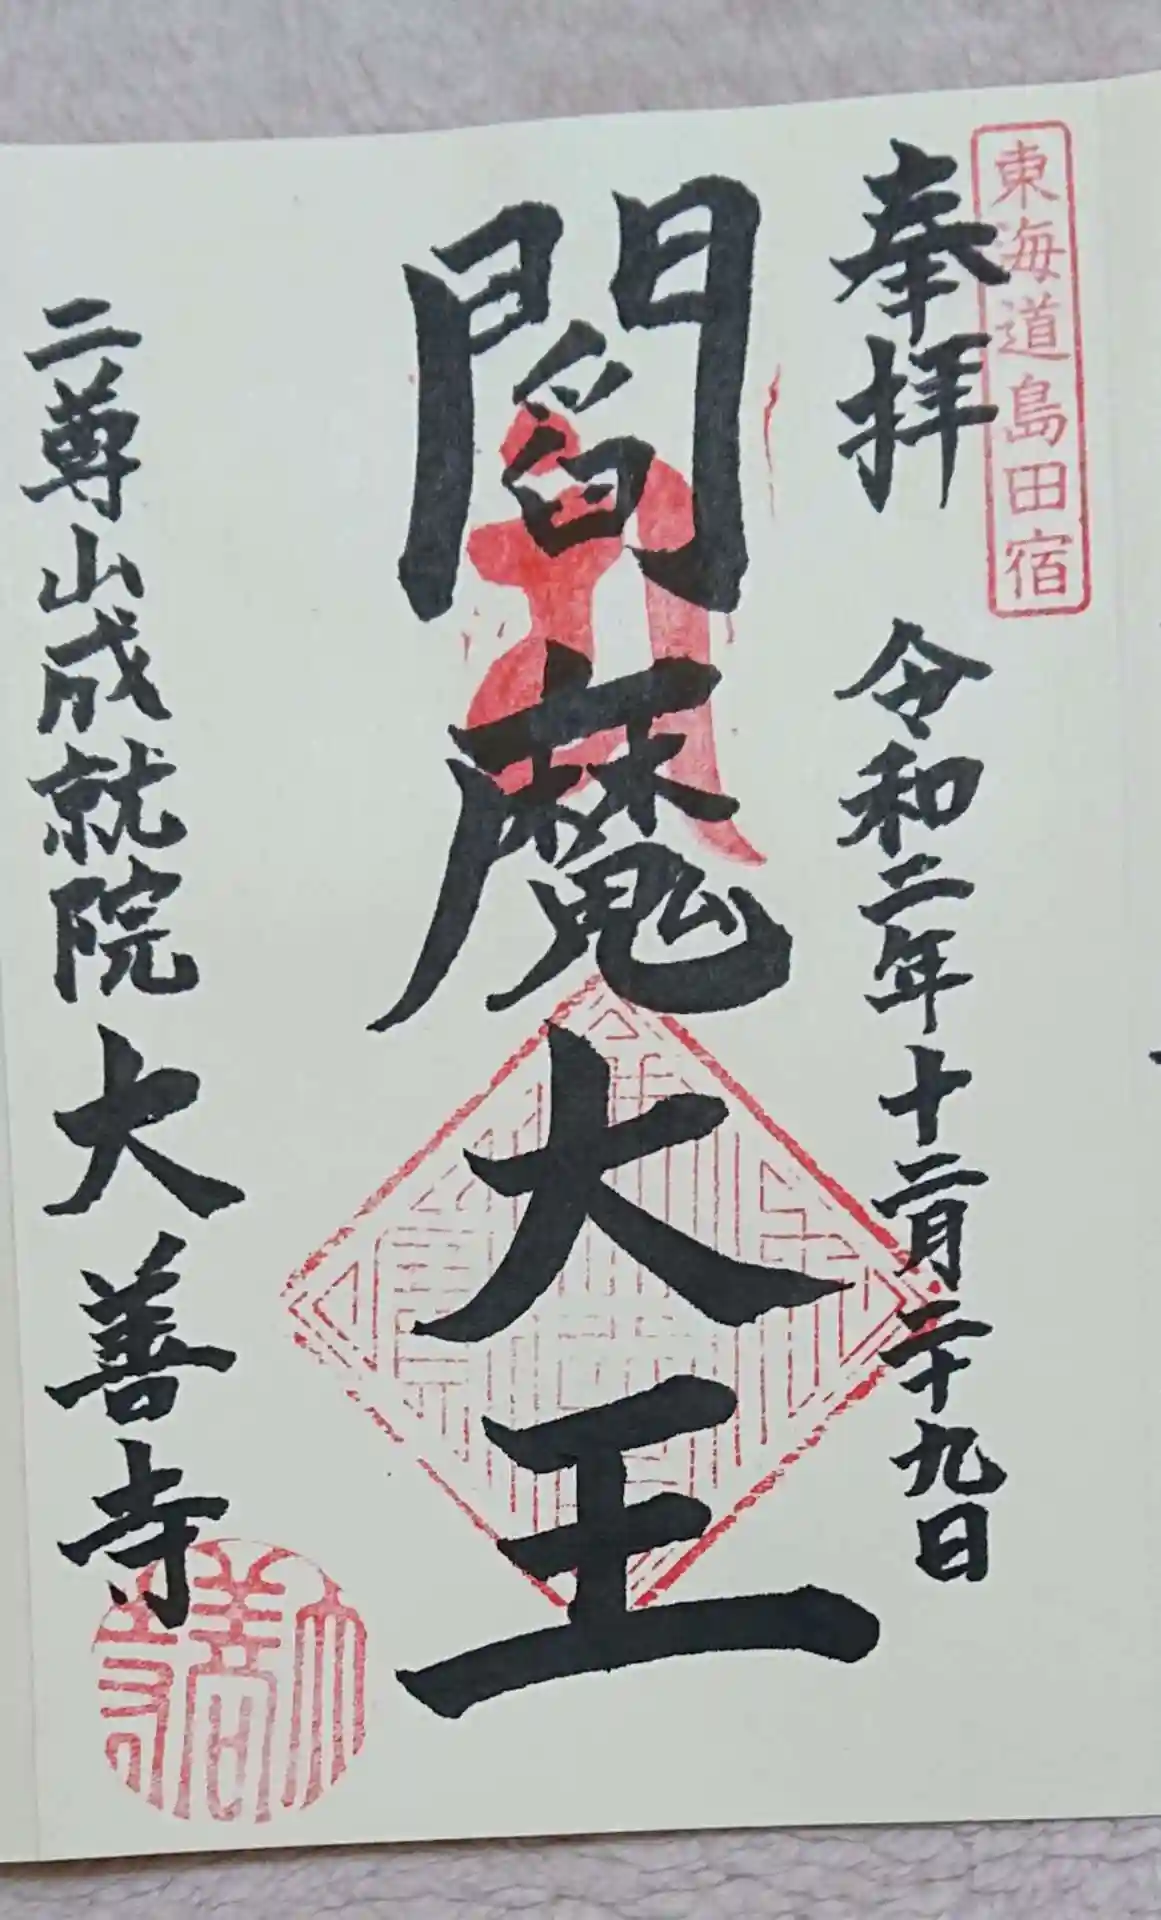 東海道島田宿
奉拝 令和二年十二月二十九日
閻魔大王
二尊山成就院 大善寺